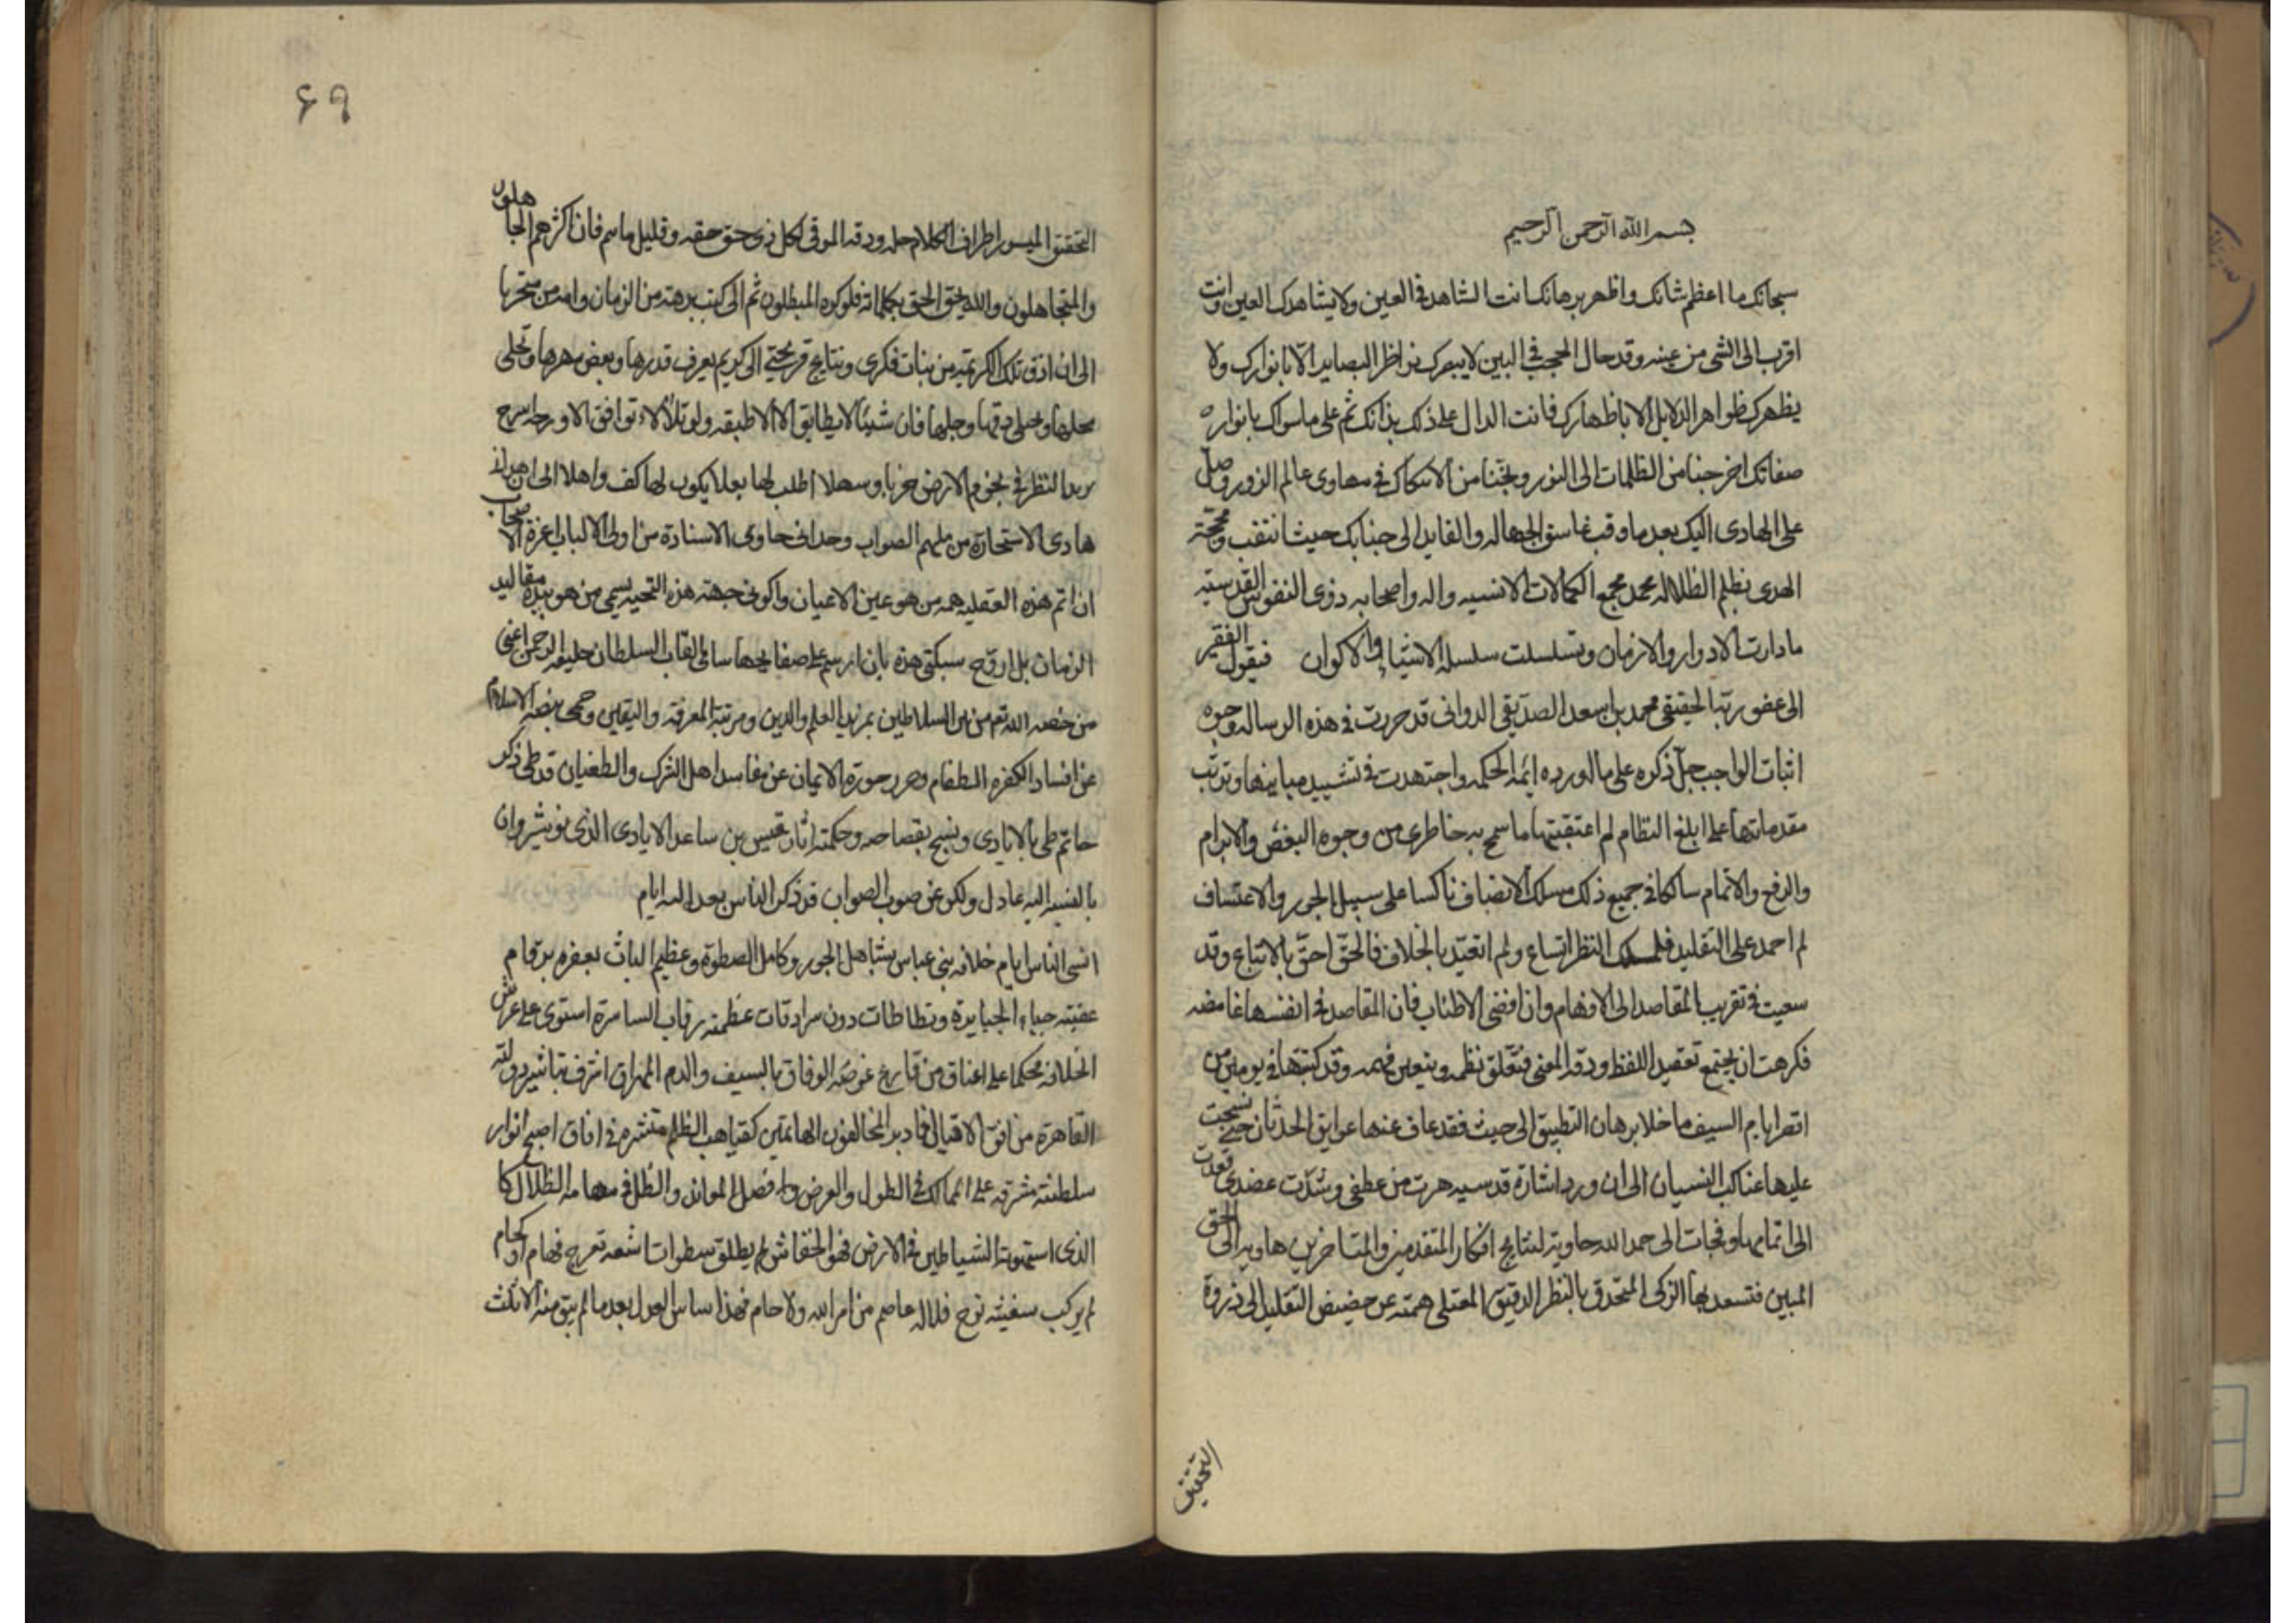 بسم الله الرحمن الرحيم
سبحانك ما اعظم شانك واظهر برهانك انت الشاهد في العين ولا يشاهدك العين وانت
اقرب الى الشى من عينه وقد حال الحجب في البين لا يبصرك نواظر البصاير الا بانوارك ولا
يظهرك ظواهر الدلايل الا باظهارك فانت الدال على ذلك بذاتك ثم على ما سواك بانواره
صفاتك اخرجنا من الظلمات الى النور ونجنا من الانتكاك في مهاوى عالم الزور وصل
على الهادى اليك بعد ما وقب غاسق الجهاله والقايد الى جنابك حيث انتقب محجة
الهدى بظلم الظلاله محمد مجمع الكمالات الانسيه واله واصحابه ذوى النفوس القدسيه
ما دارت الادوار والازمان وتسلسلت سلسلة الاشيا والاكوان فيقول الفقير
الى عفو ربه الحقيقى محمد بن اسعد الصديقي الدوانى قد حررت في هذه الرساله وجوه
اثبات الواجب جل ذكره على ما اورده ائمة الحكمه واجتهدت في تشييد مبانيها وترتب
مقدماتها على ابلغ النظام لم اعتقبتها ما سمح به خاطرى من وجوه النقض والابرام
والدفع والاتمام سالكا في جميع ذلك مسلك الانصاف ناكسا على سبيل الجور والاعتساف
لم اجمد على التقليد فلمسلك النظر اتساع ولم اتقيد بالخلاف فالحق احق بالاتباع وقد
سعيت في تقريب المقاصد الى الافهام وان افضى الاطناب فان المقاصد في انفسها غامضه
فكرهت ان يجتمع تعقيد اللفظ ودقة المعنى فتغلق نظمه ويتعين فهمه وقد كتبتها في يومين من
اقصر ايام السيف ما خلا برهان التطبيق الى حيث فقد عاف عنها عوايق الحدثان حتى نسجت
عليها عناكب النسيان الى ان ورد اشارة قدسيه هزت من عطفى وشدت عضدى فعدت
الى اتمامها وفجات الى حمد الله حاوية لنتايج افكار المتقدمين والمتاخرين هاويه الى الحق
المبين فتسعد بها الزكى المتحدق بالنظر الدقيق المعتلى همته عن حضيض التقليد الى ذروة
التحقيق
٦٩
التحقيق الميسر اطراف الكلام جله ودقه الموفى لكل ذى حق حقه وقليل ما هم فان اكثرهم الجاهلون
والمتجاهلون والله يحق الحق بكلماته فلو كره المبطلون ثم الى كنت برهة من الزمان وامد من متحريا
الى ان ازق تلك الكريمه من بنات فكرى ونتايج قريحتى الى كريم يعرف قدرها وبعض مهرها وتحلى
محلها وتجلى دقها وجلها فان شيئا لا يطابق الا الاطبقه ولو تلالاء توافق الا ورجه اسرح
بريد النظر في نجوم الارض حزنا وسهلا اطلب لها بعلا يكون لها كفوا واهلا الى اهدانى
هادى الاستخاره من ملهم الصواب وحدانى حاوى الاستنادة من اولى الالباب اعزة الاصحاب
ان اتم هذه العقليه همه من هو عين الاعيان واكونى جبهته هذه التحيه يسمى من هو بيده مقاليد
الزمان بل اروج سبكتى هذه بان ارسم على صفايحها سائى القاب السلطان خليفه الرحمن اعنى
من خصه الله تعم من بين السلاطين بمزيد العلم والدين ومرتبة المعرفه واليقين وحمى بيضه الاسلام
عن افساد الكفره الطغام وحرر حوزة الايمان عن مفاسد اهل الشرك والطغيان قد طى ذكر
حاتم طى بالايادى ونسج بفصاحه وحكمته اثار قيس بن ساعد الايادى الذى نوشيروان
بالنسبه اليه عادل ولكن عن صوب الصواب قد ذكر الناس بعد اله ايام
انسى الناس ايام خلافه بنى عباس بشاهل الجور وكامل الصطوة وعظيم الباث بعفره برقام
عقبته جباه الجبابرة وتطاطات دون سرادقات عظمته رقاب السامرة استوى على عرش
الخلافه محكما على اعناق من قارع غوضه الوفاق بالسيف والدم المهراق اشرف تباشير دولته
القاهرة من افق الاقبال فادبر المخالفون الهائمين كغياهب الظلم منتشره في افاق اصبح انوار
سلطنته مشرقه على الممالك في الطول والعرض وله فضل الموائد والظل في مهامه الظلال كا
الذى استهوته الشياطين في الارض فهو الخفاش لم يطلق سطوات اشعه تعرج فهام او كحام
لم يركب سفينه نوح فلا له عاصم من امر الله ولا حام فهذا ساس العدل بعد ما لم يبق منه الا ثلث